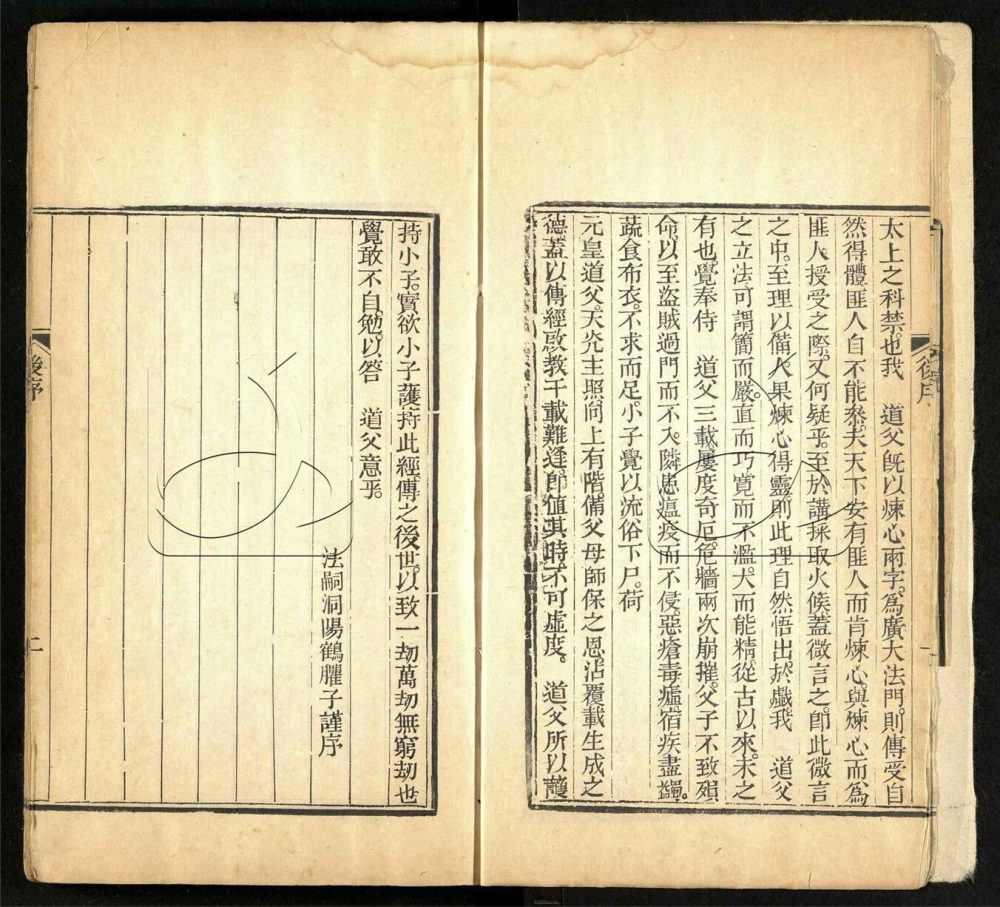 太上之科禁也我　道父旣以煉心兩字。爲廣大法門。則傳受自
然得體匪人自不能叅。夫天下安有匪人而肯煉心。與煉心而爲
匪人。授受之際。又何疑乎。至於講採取火候。蓋微言之。卽此微言
之中。至理以備。人果煉心得靈。則此理自然悟出。於戲我　道父
之立法可謂簡而嚴。直而巧。寬而不濫。大而能精。從古以來。未之
有也。覺奉侍　道父三載。屢度奇厄。危牆兩次崩摧。父子不致殞
命。以至盜賊過門而不入。隣患瘟疫而不侵。惡瘡毒瘧。宿疾盡蠲。
蔬食布衣。不求而足。小子覺以流俗下尸。荷
元皇道父。天尣主照。向上有階。備父母師保之恩。沾覆載生成之
德。蓋以傳經啟教千載難逢。卽值其時。不可虛度。　道父所以護
後序
一
持小子。實欲小子護持此經。傳之後世。以致一刧萬刧無窮刧也
覺敢不自勉。以答　道父意乎。
法嗣洞陽鶴臞子謹序
後序
二